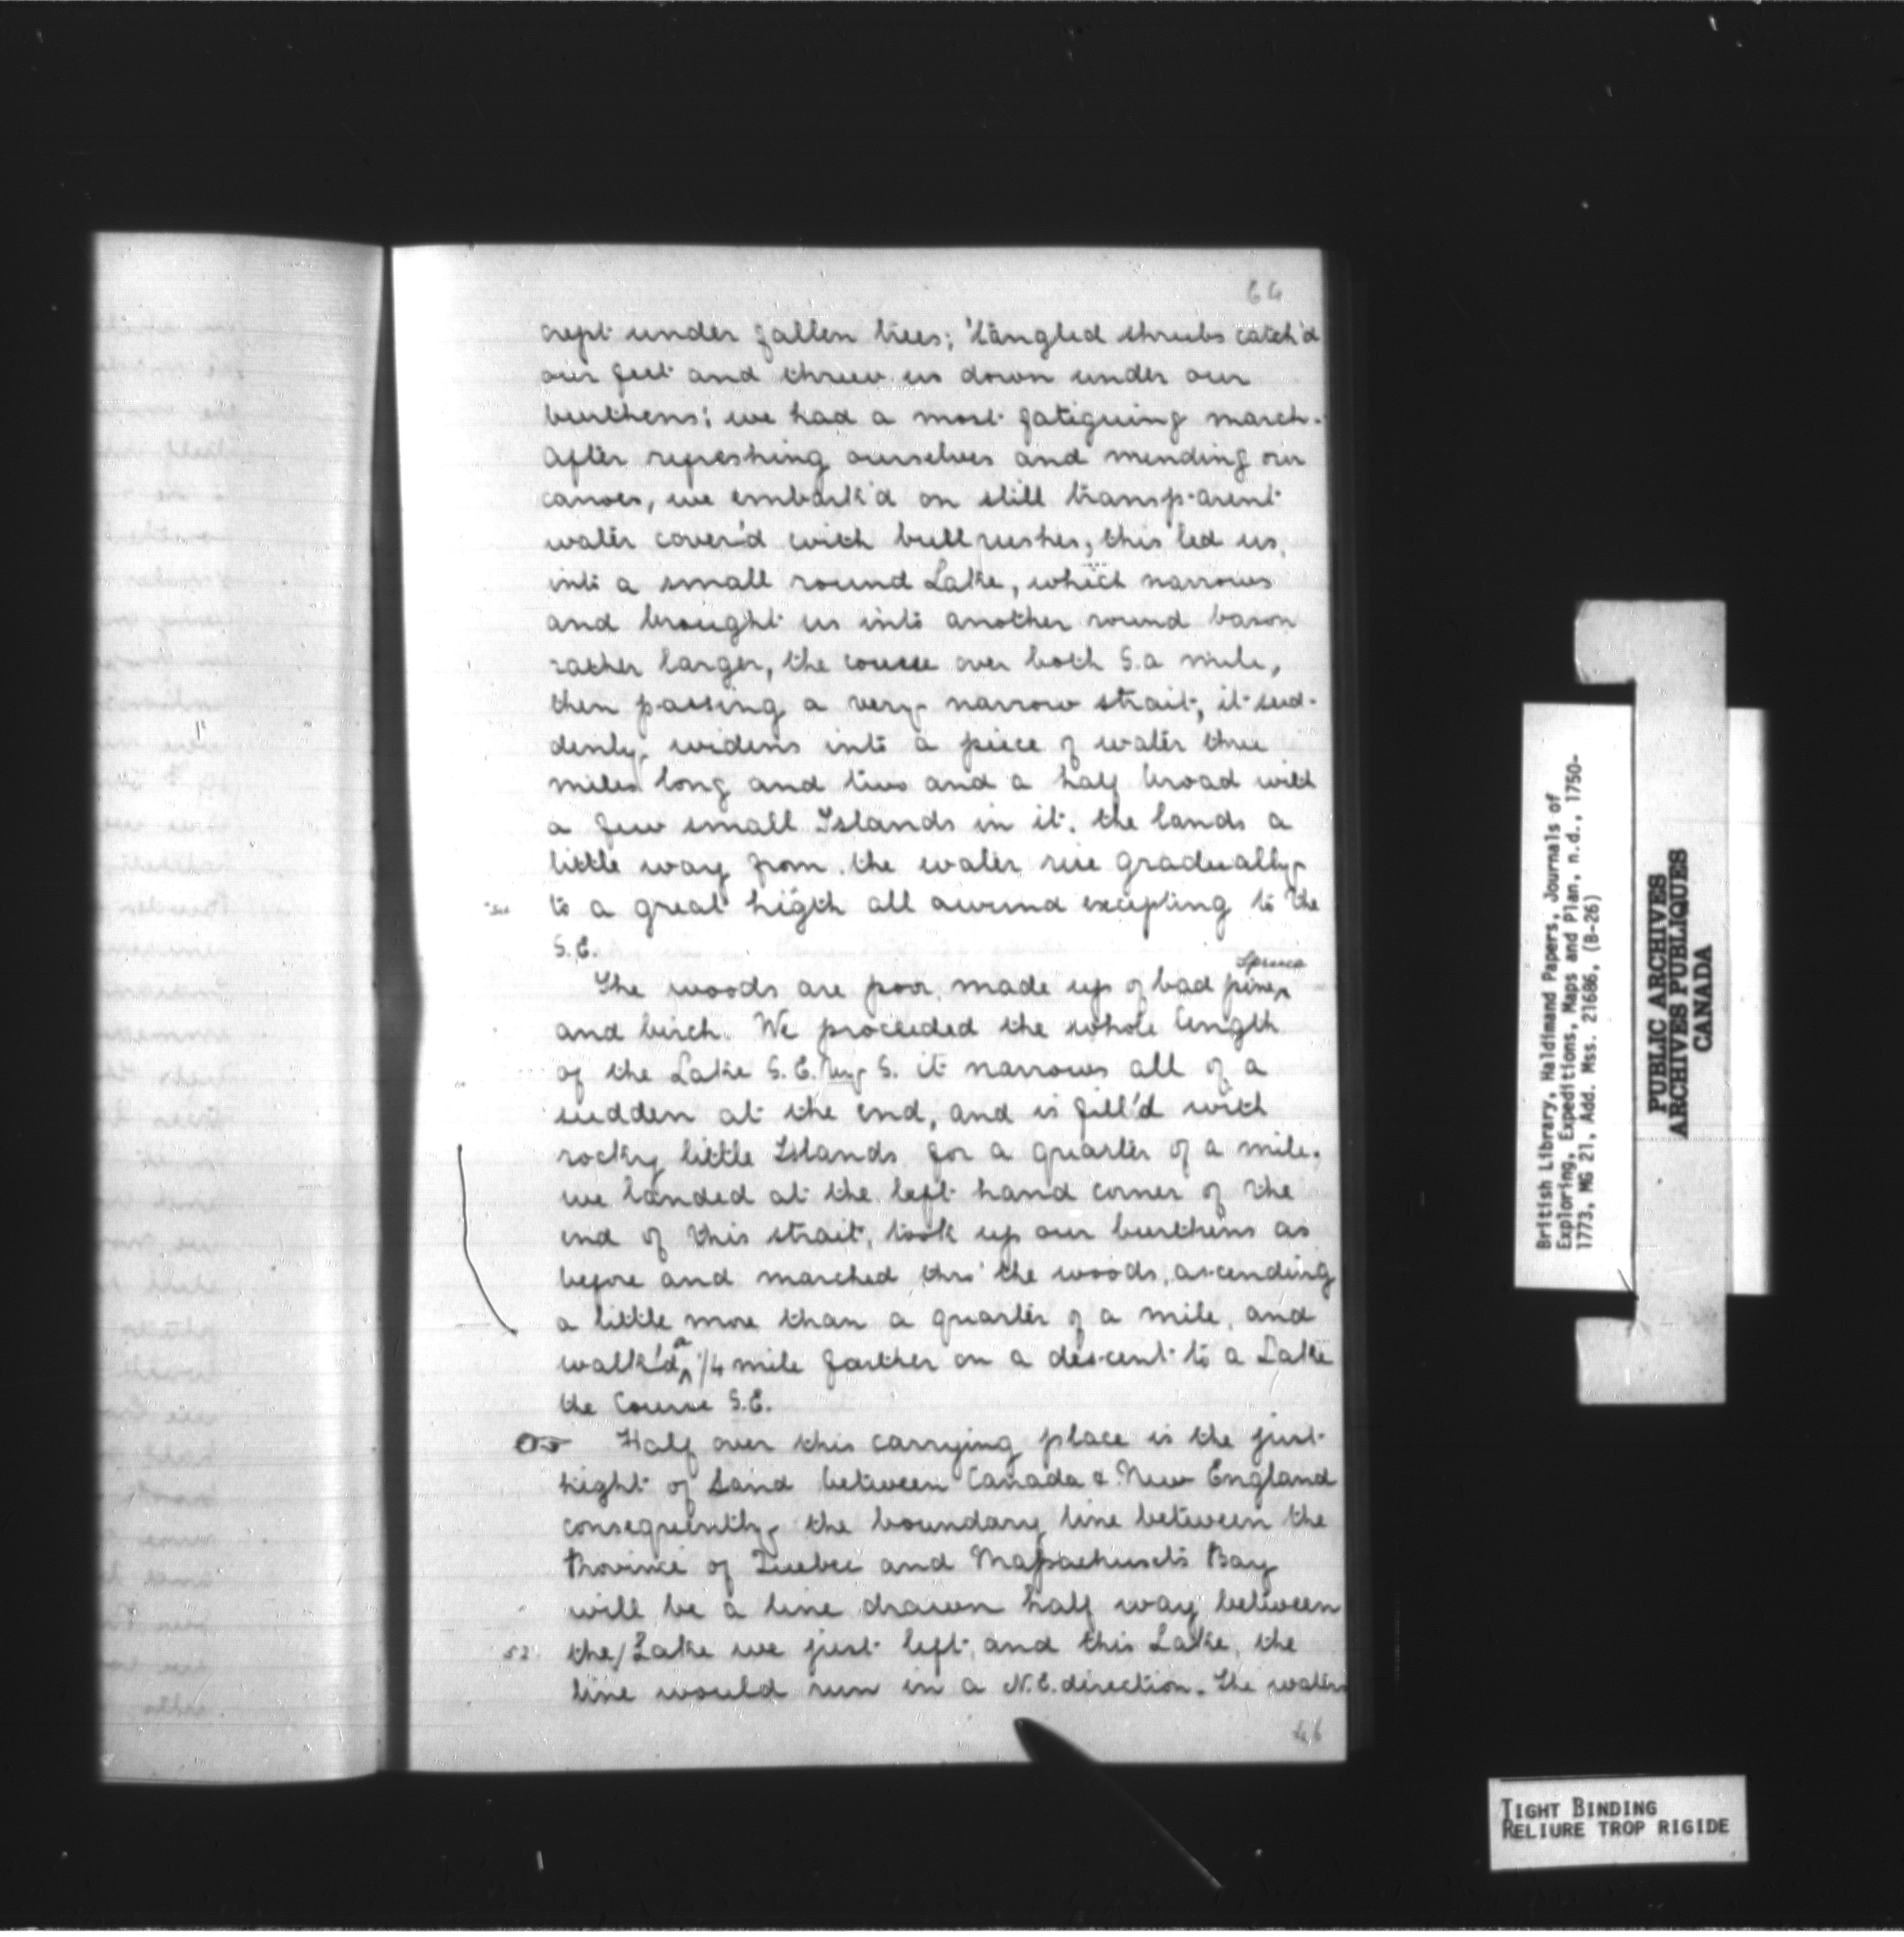 66
crept under fallen trees; tangled shrubs catch'd
our feet and threw us down under our
burthens; we had a most fatiguing march.
After refreshing ourselves and mending our
canoes, we embark'd on still transparent
water cover'd with bullrushes, this led us
into a small round Lake, which narrows
and brought us into another round bason
rather larger, the course over both S. a mile,
then passing a very narrow strait, it sud-
denly widens into a piece of water three
miles long and two and a half broad with
a few small Islands in it. the lands a
little way from the water rise gradually
to a great higth all around excepting to the
S.E.
The woods are poor, made up of bad pine, Spruce
and birch. We proceeded the whole length
of the Lake S.E. by S. it narrows all of a
sudden at the end, and is fill'd with
rocky little Islands for a quarter of a mile.
we landed at the left hand corner of the
end of this strait, took up our burthens as
before and marched thro' the woods, ascending
a little more than a quarter of a mile, and
walk'd a 1/4 mile farther on a descent to a Lake
the Course S.E.
Half over this carrying place is the just
hight of Land between Canada & New England
consequently the boundary line between the
Province of Quebec and Massachusets Bay
will be a line drawn half way between
52. the/Lake we just left, and this Lake, the
line would run in a N.E. direction. The waters
46
British Library, Haldimand Papers, Journals of
Exploring, Expeditions, Maps and Plan, n.d., 1750-
1773, MG 21, Add. Mss. 21686, (B-26)
PUBLIC ARCHIVES
ARCHIVES PUBLIQUES
CANADA
TIGHT BINDING
RELIURE TROP RIGIDE